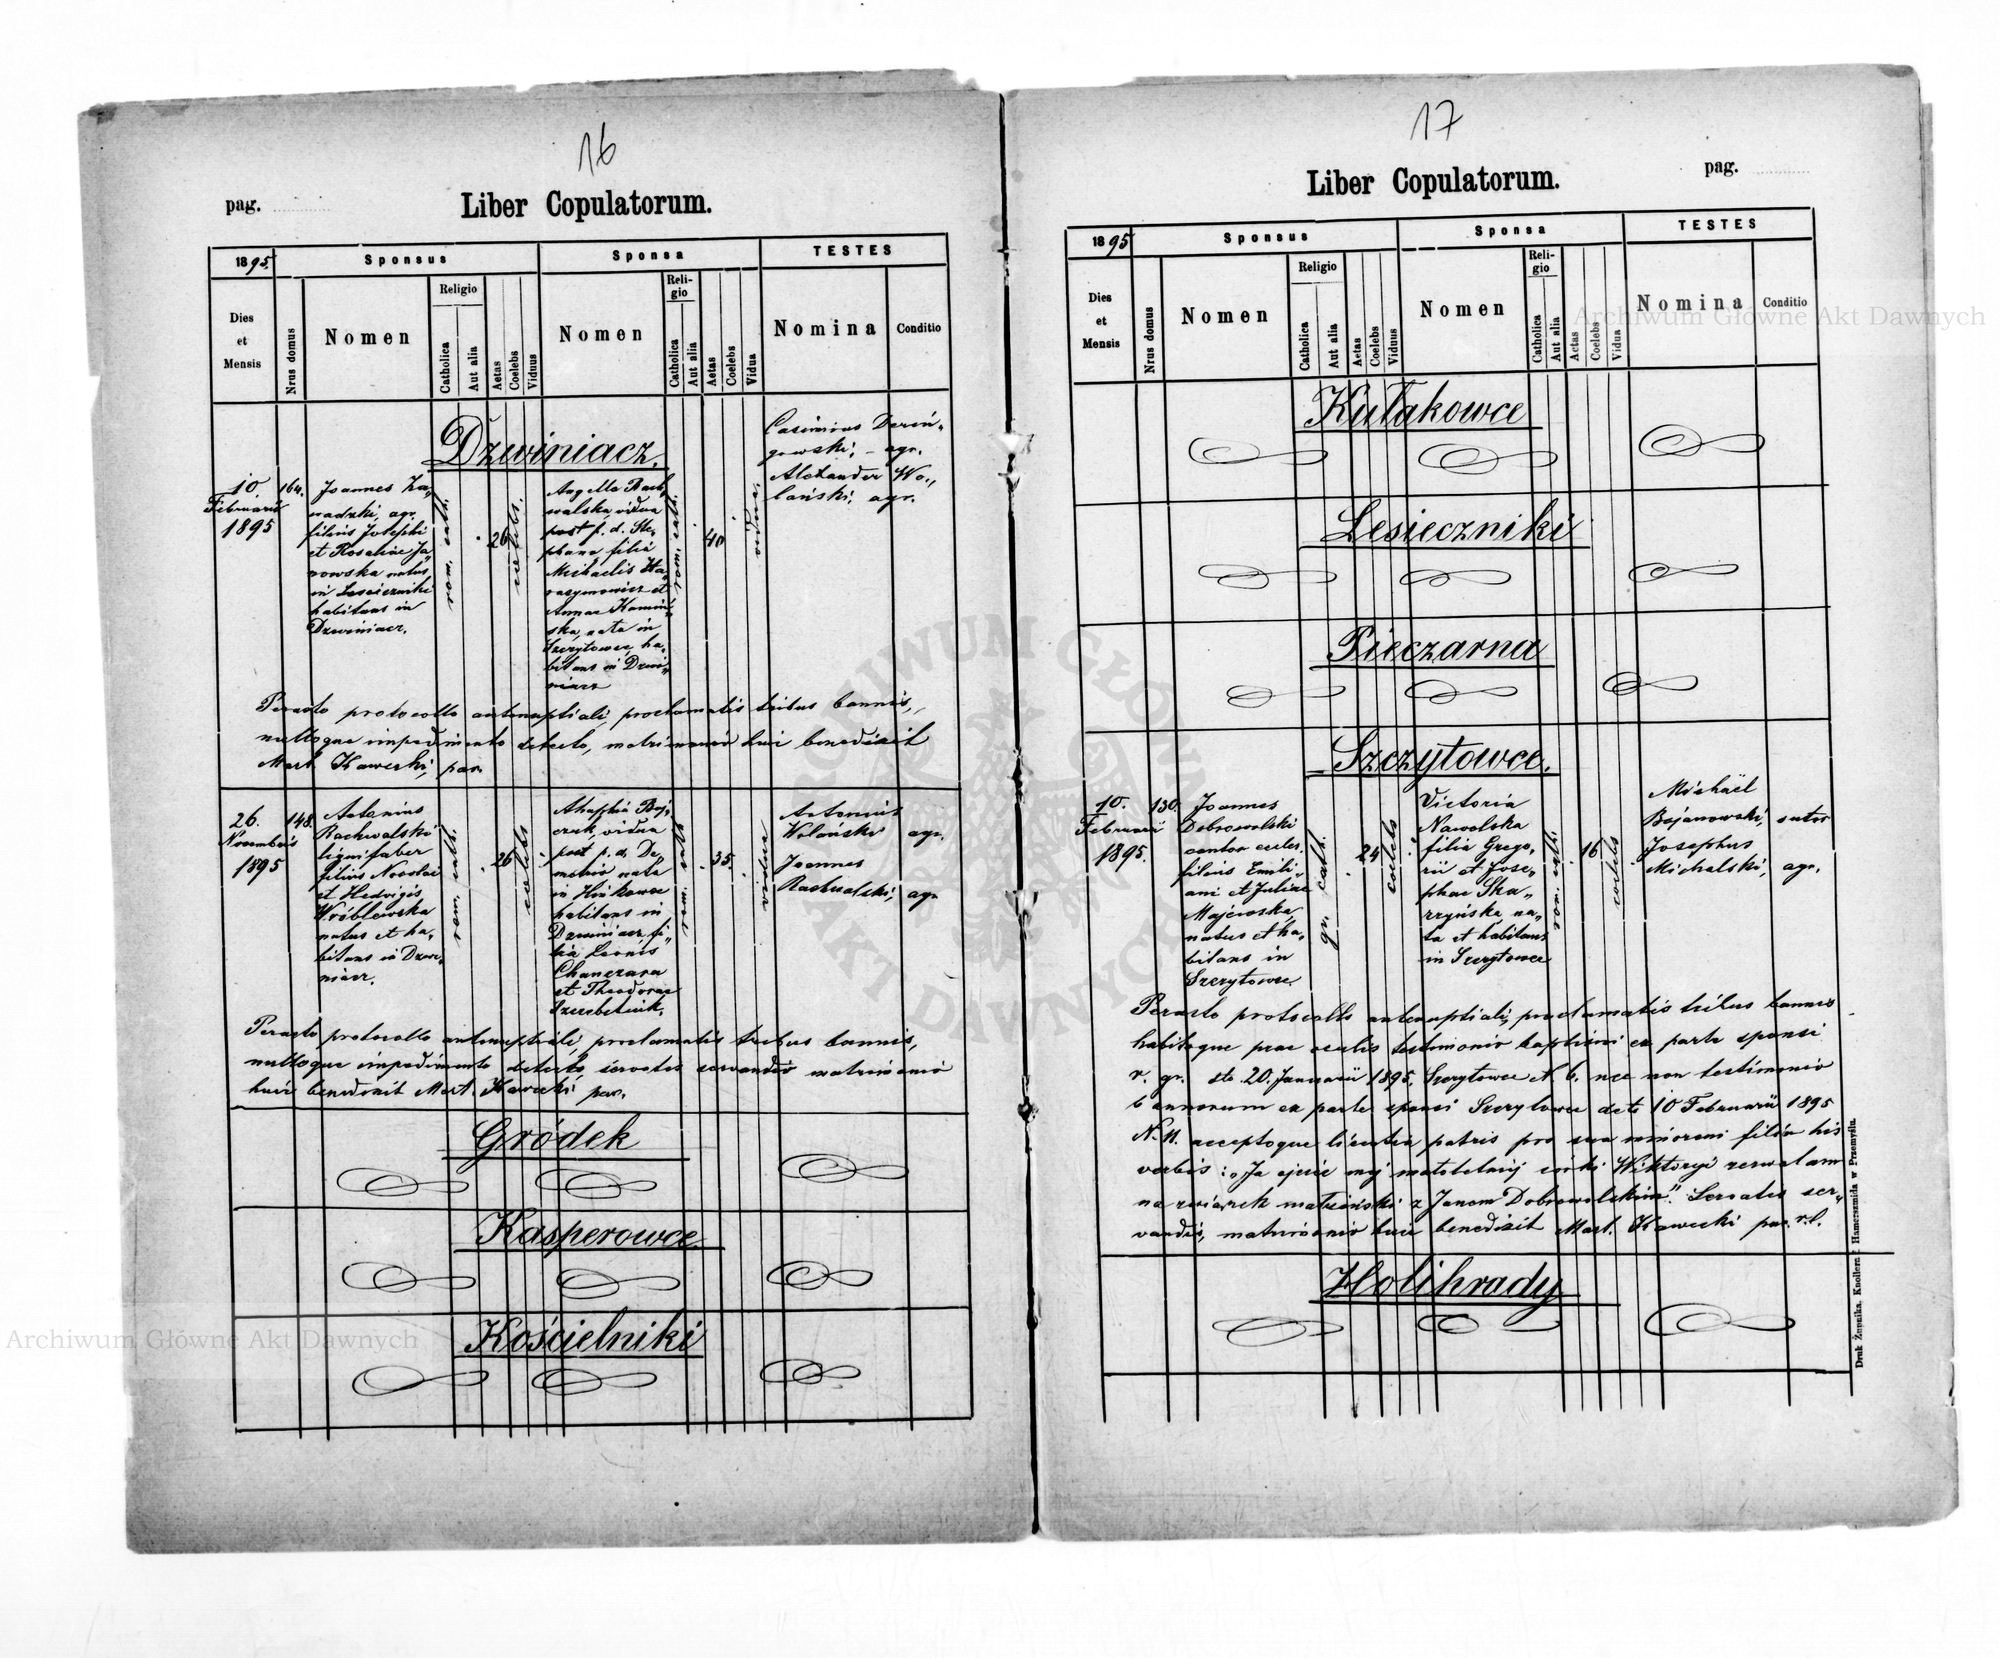 16
pag.
Liber Copulatorum.
1895.
Sponsus
Sponsa
TESTES
Dies
et
Mensis
Nrus domus
Nomen
Religio
Catholica
Aut alia
Aetas
Coelebs
Viduus
Nomen
Reli-
gio
Catholica
Aut alia
Aetas
Coelebs
Vidua
Nomina
Conditio
Dzwiniacz.
10
Februarii
1895
164.
Joannes Za„
wadzki, agr.
filius Josephi
et Rosaliae Ja„
nowska natus
in Lesieczniki
habitans in
Dzwiniacz.
rom. cath.
26
coelebs.
Angella Rach„
walska, vidua
post p. d. Ste„
phano filia
Michaelis Ha„
rasymowicz et
Annae Kamiń„
ska, nata in
Szczytowce, ha„
bitans in Dzwi„
niacz
rom. cath.
40
vidua.
Casimirus Deren„
gowski, - agr.
Alexander Wo„
lański, agr.
Peracto protocollo antenuptiali, proclamatis tribus bannis,
nulloque impedimento detecto, matrimonio huic benedixit
Mart. Kawecki, par.
26.
Novembris
1895
148.
Antonius
Rachwalski
lignifaber
filius Nicolai
et Hedvigis
Wróblewska
natus et ha„
bitans in Dzwi„
niacz.
rom. cath.
26
coelebs
Ahaphia Boj„
czuk, vidua
post p. d. De„
metrio nata
in Hińkowce
habitans in
Dzwiniacz fi„
lia Leonis
Chanczara
et Theodorae
rom. cath
35.
vidua
Antonius
Wolański agr.
Joannes
Rachwalski, agr.
Peracto protocollo antenuptiali, proclamatis tribus bannis,
nulloque impedimento detecto, servatis servandis matrimonio
huic benedixit Mart. Kawecki par.
Gródek
Kasperowce
Kościelniki
17
Liber Copulatorum.
pag.
1895
Sponsus
Sponsa
TESTES
Dies
et
Mensis
Nrus domus
Nomen
Religio
Catholica
Aut alia
Aetas
Coelebs
Viduus
Nomen
Reli-
gio
Catholica
Aut alia
Aetas
Coelebs
Vidua
Nomina
Conditio
Kułakowce
Lesieczniki
Pieczarna
Szczytowce.
10.
Februarii
1895.
130.
Joannes
Dobrowolski
cantor eccles.
filius Emili„
ani et Juliae
Majewska,
natus et ha„
bitans in
Szczytowce.
gr. cath.
24
coelebs
Victoria
Nawolska
filia Grego„
rii et Jose„
phae Ska„
rzyńska, na„
ta et habitans
in Szczytowce
rom. cath.
16
coelebs
Michaël
Bojanowski, sutor
Josephus
Michalski, agr.
Peracto protocollo antenuptiali, proclamatis tribus bannis
habitoque prae oculis testimonio baptismi ex parte sponsi
r. gr. dto 20. Januarii 1895. Szczytowce N. 6. nec non testimonio
bannorum ex parte sponsi Szczytowce dcto 10 Februarii 1895
N. 11. acceptoque licentia patris pro sua minoreni filia his
verbis: „Ja ojciec mej małoletniej córki Wiktoryi zezwalam
na związek małżeński z Janem Dobrowolskim". Servatis ser„
vandis, matrimonio huic benedixit Mart. Kawecki par. r. l.
Holihrady
Druk Żupnika, Knollera i Hamerszmida w Przemyślu.
ARCHIWUM GŁÓWNE
AKT DAWNYCH
Archiwum Główne Akt Dawnych
Archiwum Główne Akt Dawnych